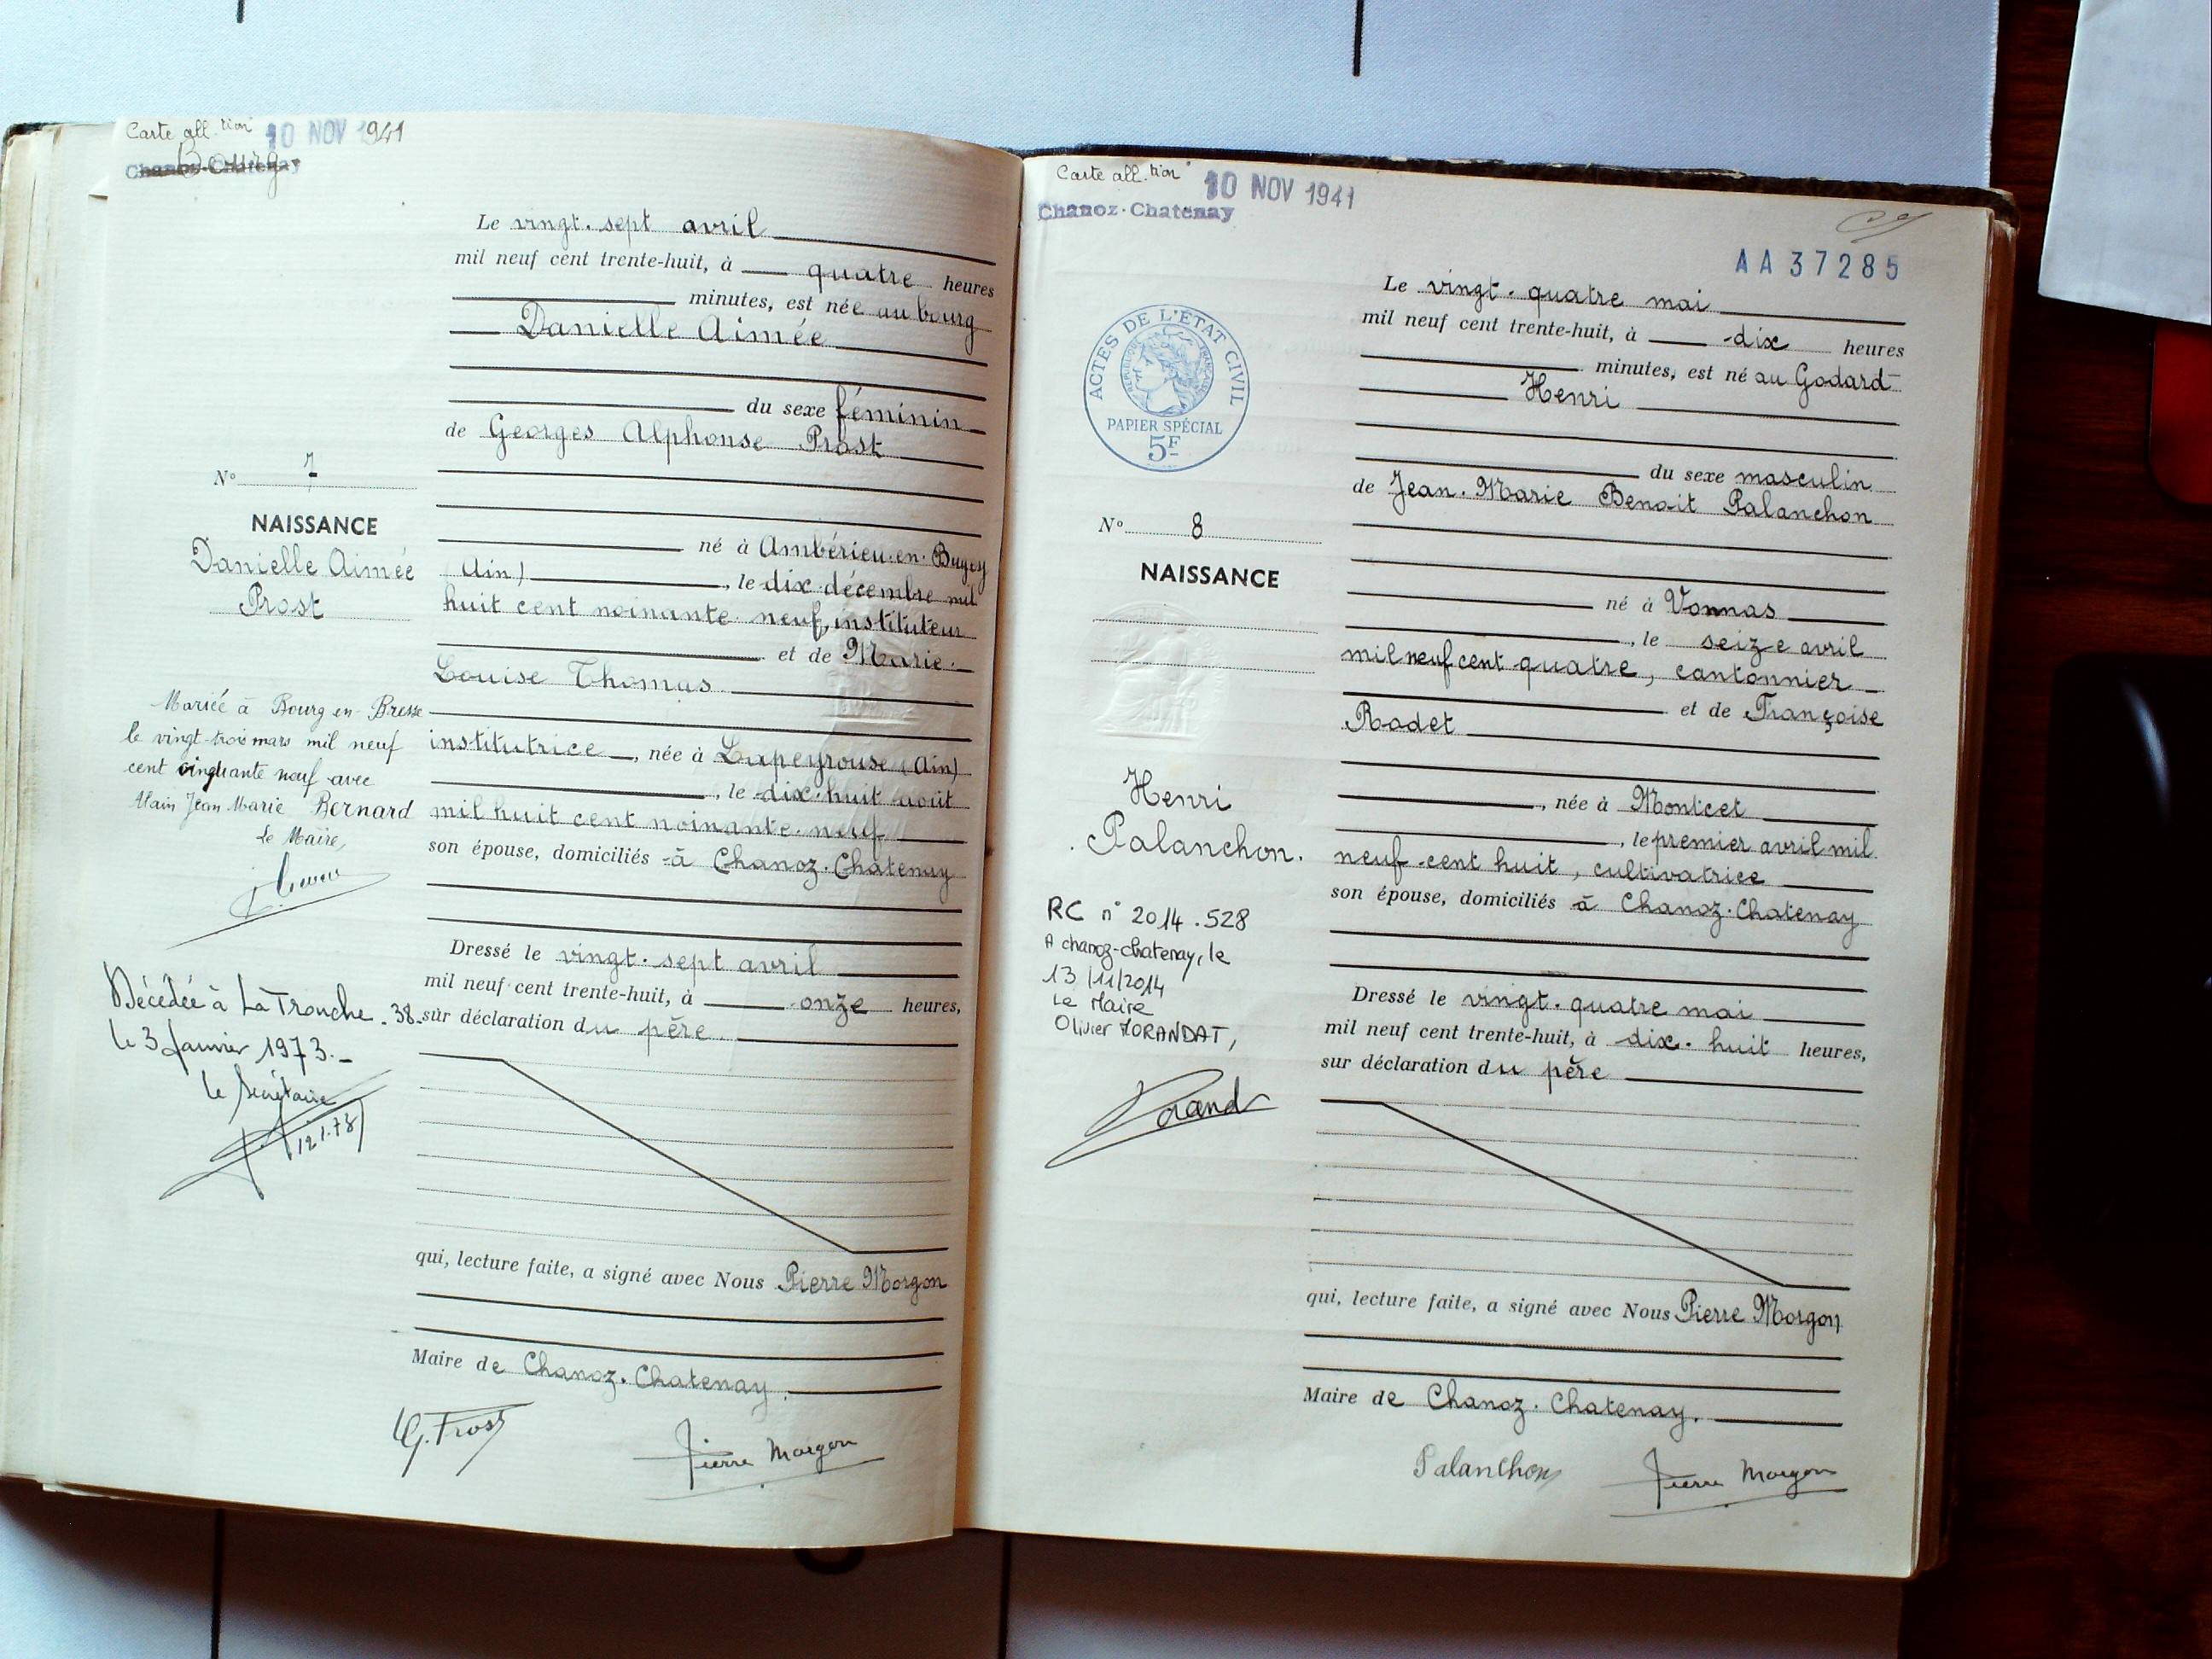 Carte all.tion 10 NOV 1941
Chanoz-Chatenay
Bourg
Le vingt-sept avril
mil neuf cent trente-huit, à quatre heures
minutes, est née au bourg
Danielle Aimée
du sexe féminin
de Georges Alphonse Prost
N° 7
NAISSANCE
Danielle Aimée
Prost
né à Ambérieu-en-Bugey
(Ain), le dix décembre mil
huit cent noinante-neuf, instituteur
et de Marie-
Louise Thomas
institutrice, née à Lapeyrouse (Ain)
, le dix-huit août
mil huit cent noinante-neuf
son épouse, domiciliés à Chanoz-Chatenay
Mariée à Bourg-en-Bresse
le vingt-trois mars mil neuf
cent cinquante neuf avec
Alain Jean Marie Bernard
Le Maire,
Décédée à La Tronche -38-
le 3 Janvier 1973.-
Le Secrétaire
Dressé le vingt-sept avril
mil neuf cent trente-huit, à onze heures,
sur déclaration du père
qui, lecture faite, a signé avec Nous Pierre Morgon
Maire de Chanoz-Chatenay.
G. Prost
Pierre Morgon
Carte all.tion 10 NOV 1941
Chanoz-Chatenay
AA37285
ACTES DE L'ÉTAT CIVIL
RÉPUBLIQUE FRANÇAISE
PAPIER SPÉCIAL
5F
Le vingt-quatre mai
mil neuf cent trente-huit, à dix heures
minutes, est né au Godard
Henri
du sexe masculin
de Jean-Marie Benoit Palanchon
N° 8
NAISSANCE
né à Vonnas
, le seize avril
mil neuf cent quatre, cantonnier
et de Françoise
Rodet
, née à Montcet
, le premier avril mil
neuf cent huit, cultivatrice
son épouse, domiciliés à Chanoz-Chatenay
Henri
Palanchon.
RC n° 2014.528
A chanoz-chatenay, le
13/11/2014
Le Maire
Olivier MORANDAT,
Dressé le vingt-quatre mai
mil neuf cent trente-huit, à dix-huit heures,
sur déclaration du père
qui, lecture faite, a signé avec Nous Pierre Morgon
Maire de Chanoz-Chatenay.
Palanchon
Pierre Morgon